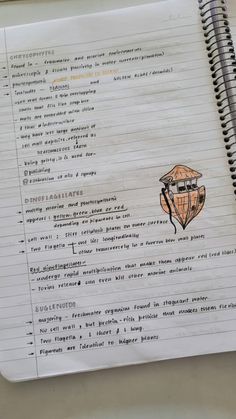 CHRYSOPHYTES
→ Found in - freshwater and marine environments
→ microscopic & floats passively in water currents (plankton)
→ photosynthetic
→ includes - DIATOMS and GOLDEN ALGAE (desmids)
cell walls form 2 thin overlapping
shells that fit like soapbox
walls are embedded with silica
& thus indestructible
→ They have left large amount of
cell wall deposits, referred as
DIATOMACEOUS EARTH
being gritty, it is used for -
① polishing
② filtration of oils & syrups
DINOFLAGELLATES
→ mostly marine and photosynthetic
→ appears : yellow, green, blue or red
depending on pigments in cell
→ cell wall : stiff cellulose plates on outer surface
→ Two flagella - one lies longitudinally
other transversely in a furrow b/w wall plates
Red dinoflagellates -
→ undergo rapid multiplication that makes them appear red (red tides)
→ Toxins released can even kill other marine animals
EUGLENOIDS
→ majority - Freshwater organisms found in stagnant water
→ No cell wall, but protein-rich pellicle that makes them flexible
→ Two flagella, 1 short & 1 long
→ Pigments are identical to higher plants